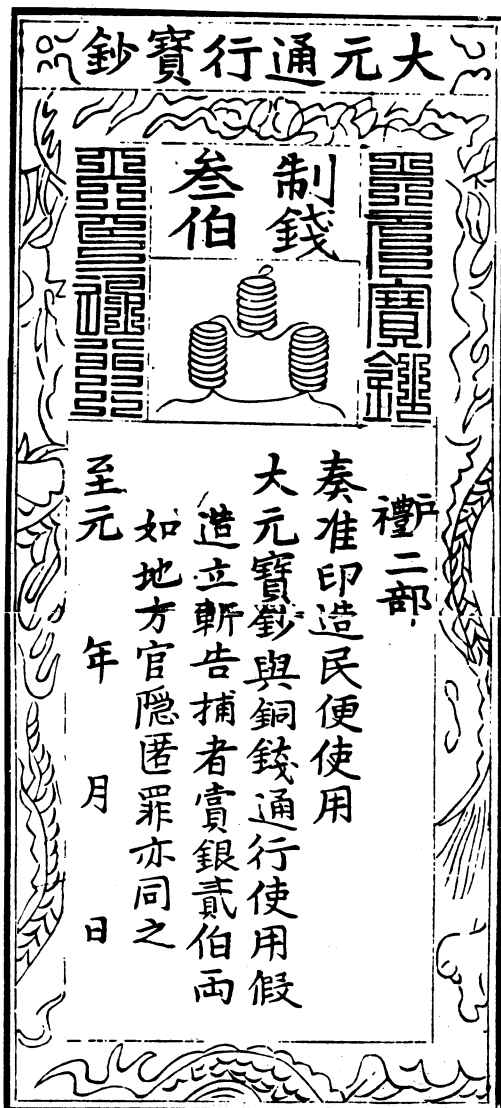 大元通行寶鈔
制錢
叁伯
戶禮二部
奏准印造民便使用
大元寶鈔與銅錢通行使用假
造立斬告捕者賞銀貳伯両
如地方官隠匿罪亦同之
至元 年 月 日